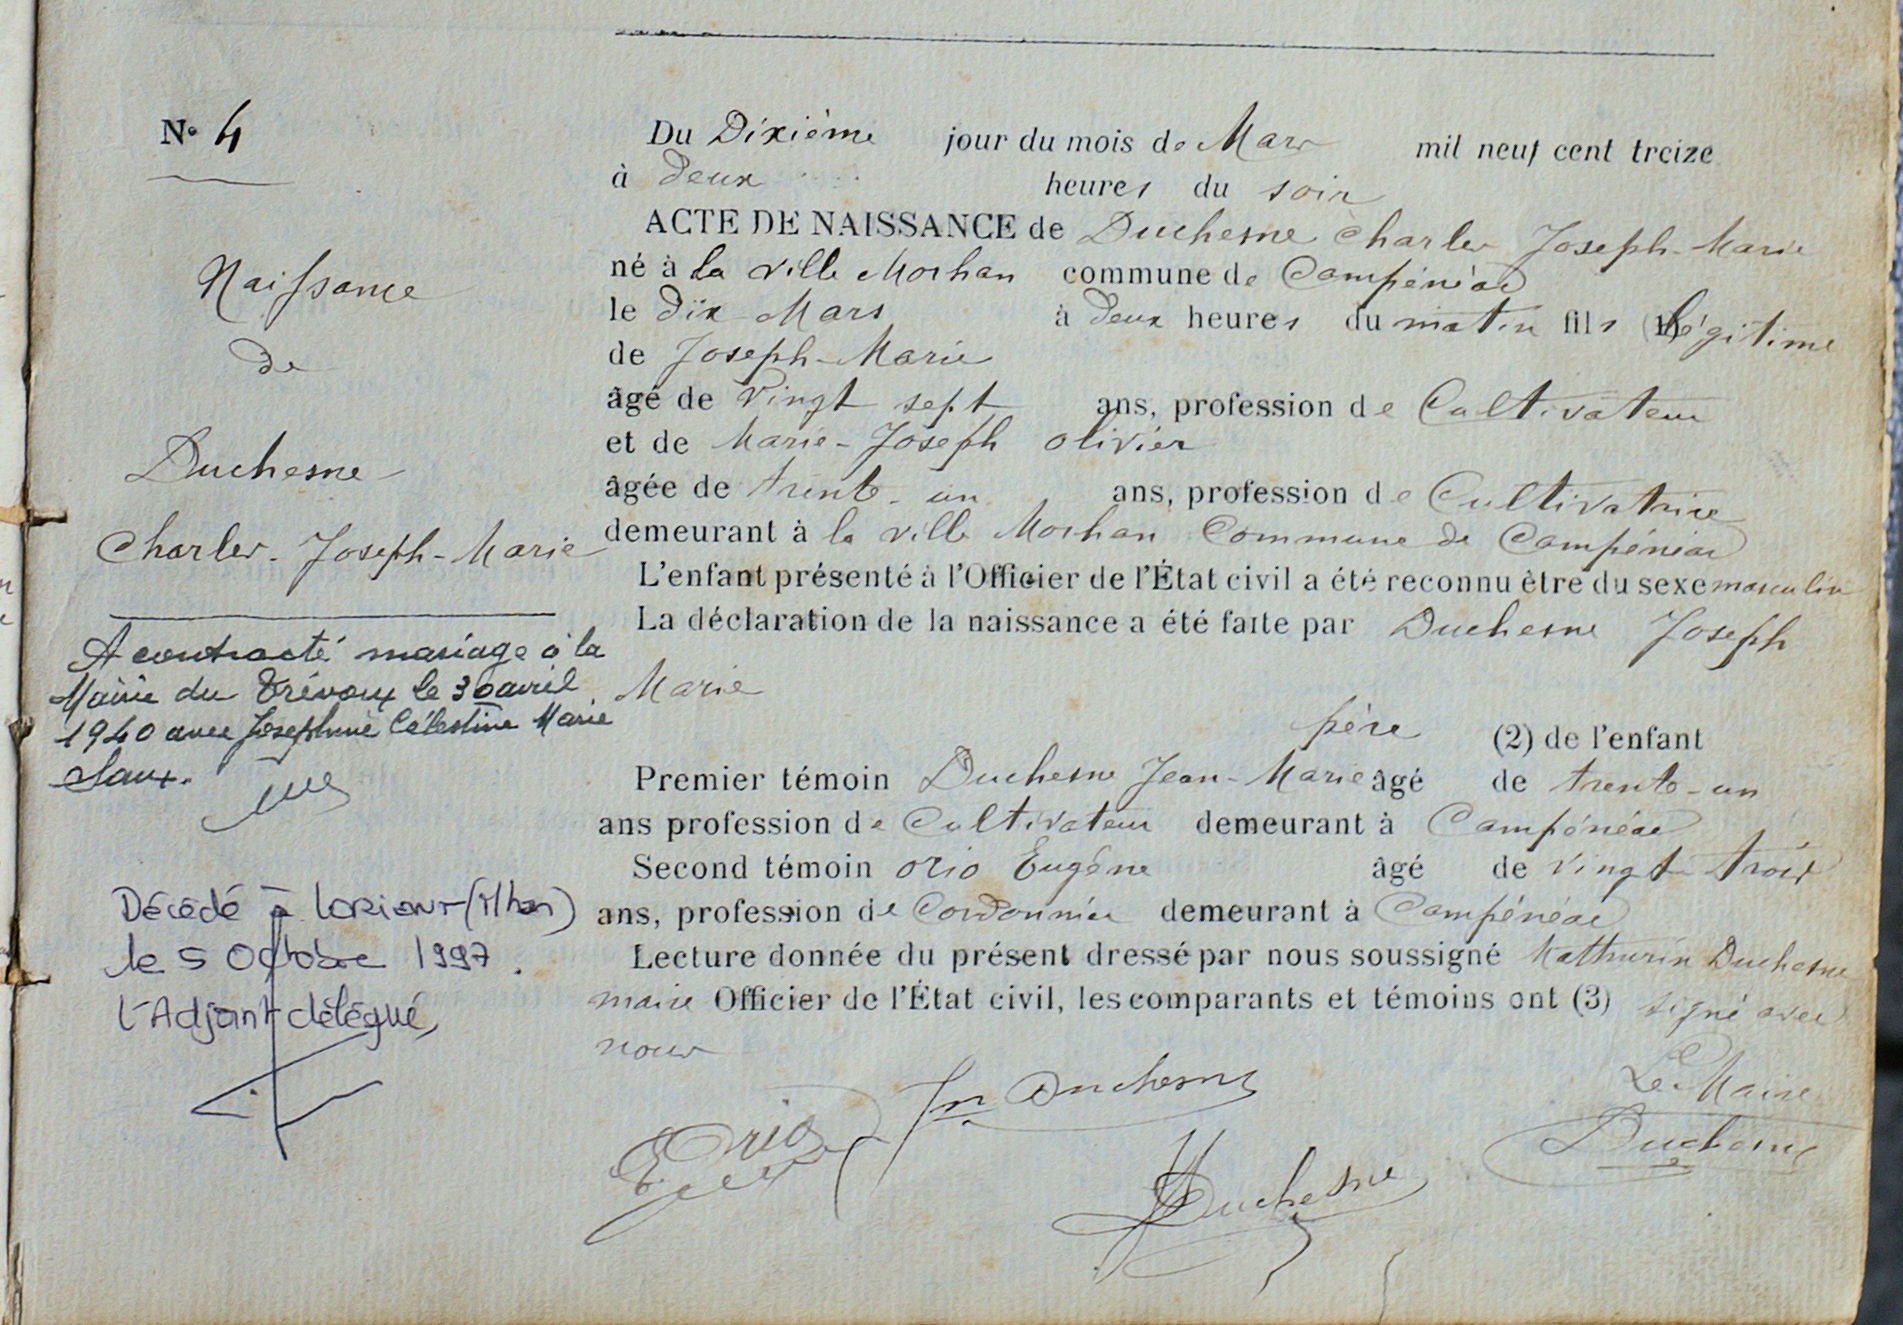 N° 4
Naissance
de
Duchesne
Charles-Joseph-Marie
A contracté mariage à la
Mairie du Trévoux le 30 avril
1940 avec Josephine Célestine Marie
Décédé à LORIENT (M/han)
le 5 Octobre 1997.
l'Adjoint délégué,
Du Dixième jour du mois de Mars mil neuf cent treize
à deux heures du soir
ACTE DE NAISSANCE de Duchesne Charles Joseph-Marie
né à la ville Morhan commune de Campénéac
le dix Mars à deux heures du matin fils (1) légitime
de Joseph-Marie
âgé de vingt sept ans, profession de Cultivateur
et de Marie-Joseph olivier
âgée de trente-un ans, profession de Cultivatrice
demeurant à la ville Morhan Commune de Campénéac
L'enfant présenté à l'Officier de l'État civil a été reconnu être du sexe masculin
La déclaration de la naissance a été faite par Duchesne Joseph
Marie
père (2) de l'enfant
Premier témoin Duchesne Jean-Marie âgé de trente-un
ans profession de Cultivateur demeurant à Campénéac
Second témoin orio Eugène âgé de vingt trois
ans, profession de Cordonnier demeurant à Campénéac
Lecture donnée du présent dressé par nous soussigné Mathurin Duchesne
maire Officier de l'État civil, les comparants et témoins ont (3) signé avec
nous
Le Maire
E Orio
Jn Duchesne
Duchesne
Duchesne